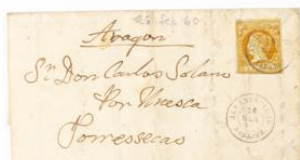 25 Dec 60
Aragon
Sr Don Carlos Solano
Por Huesca
Torressecas